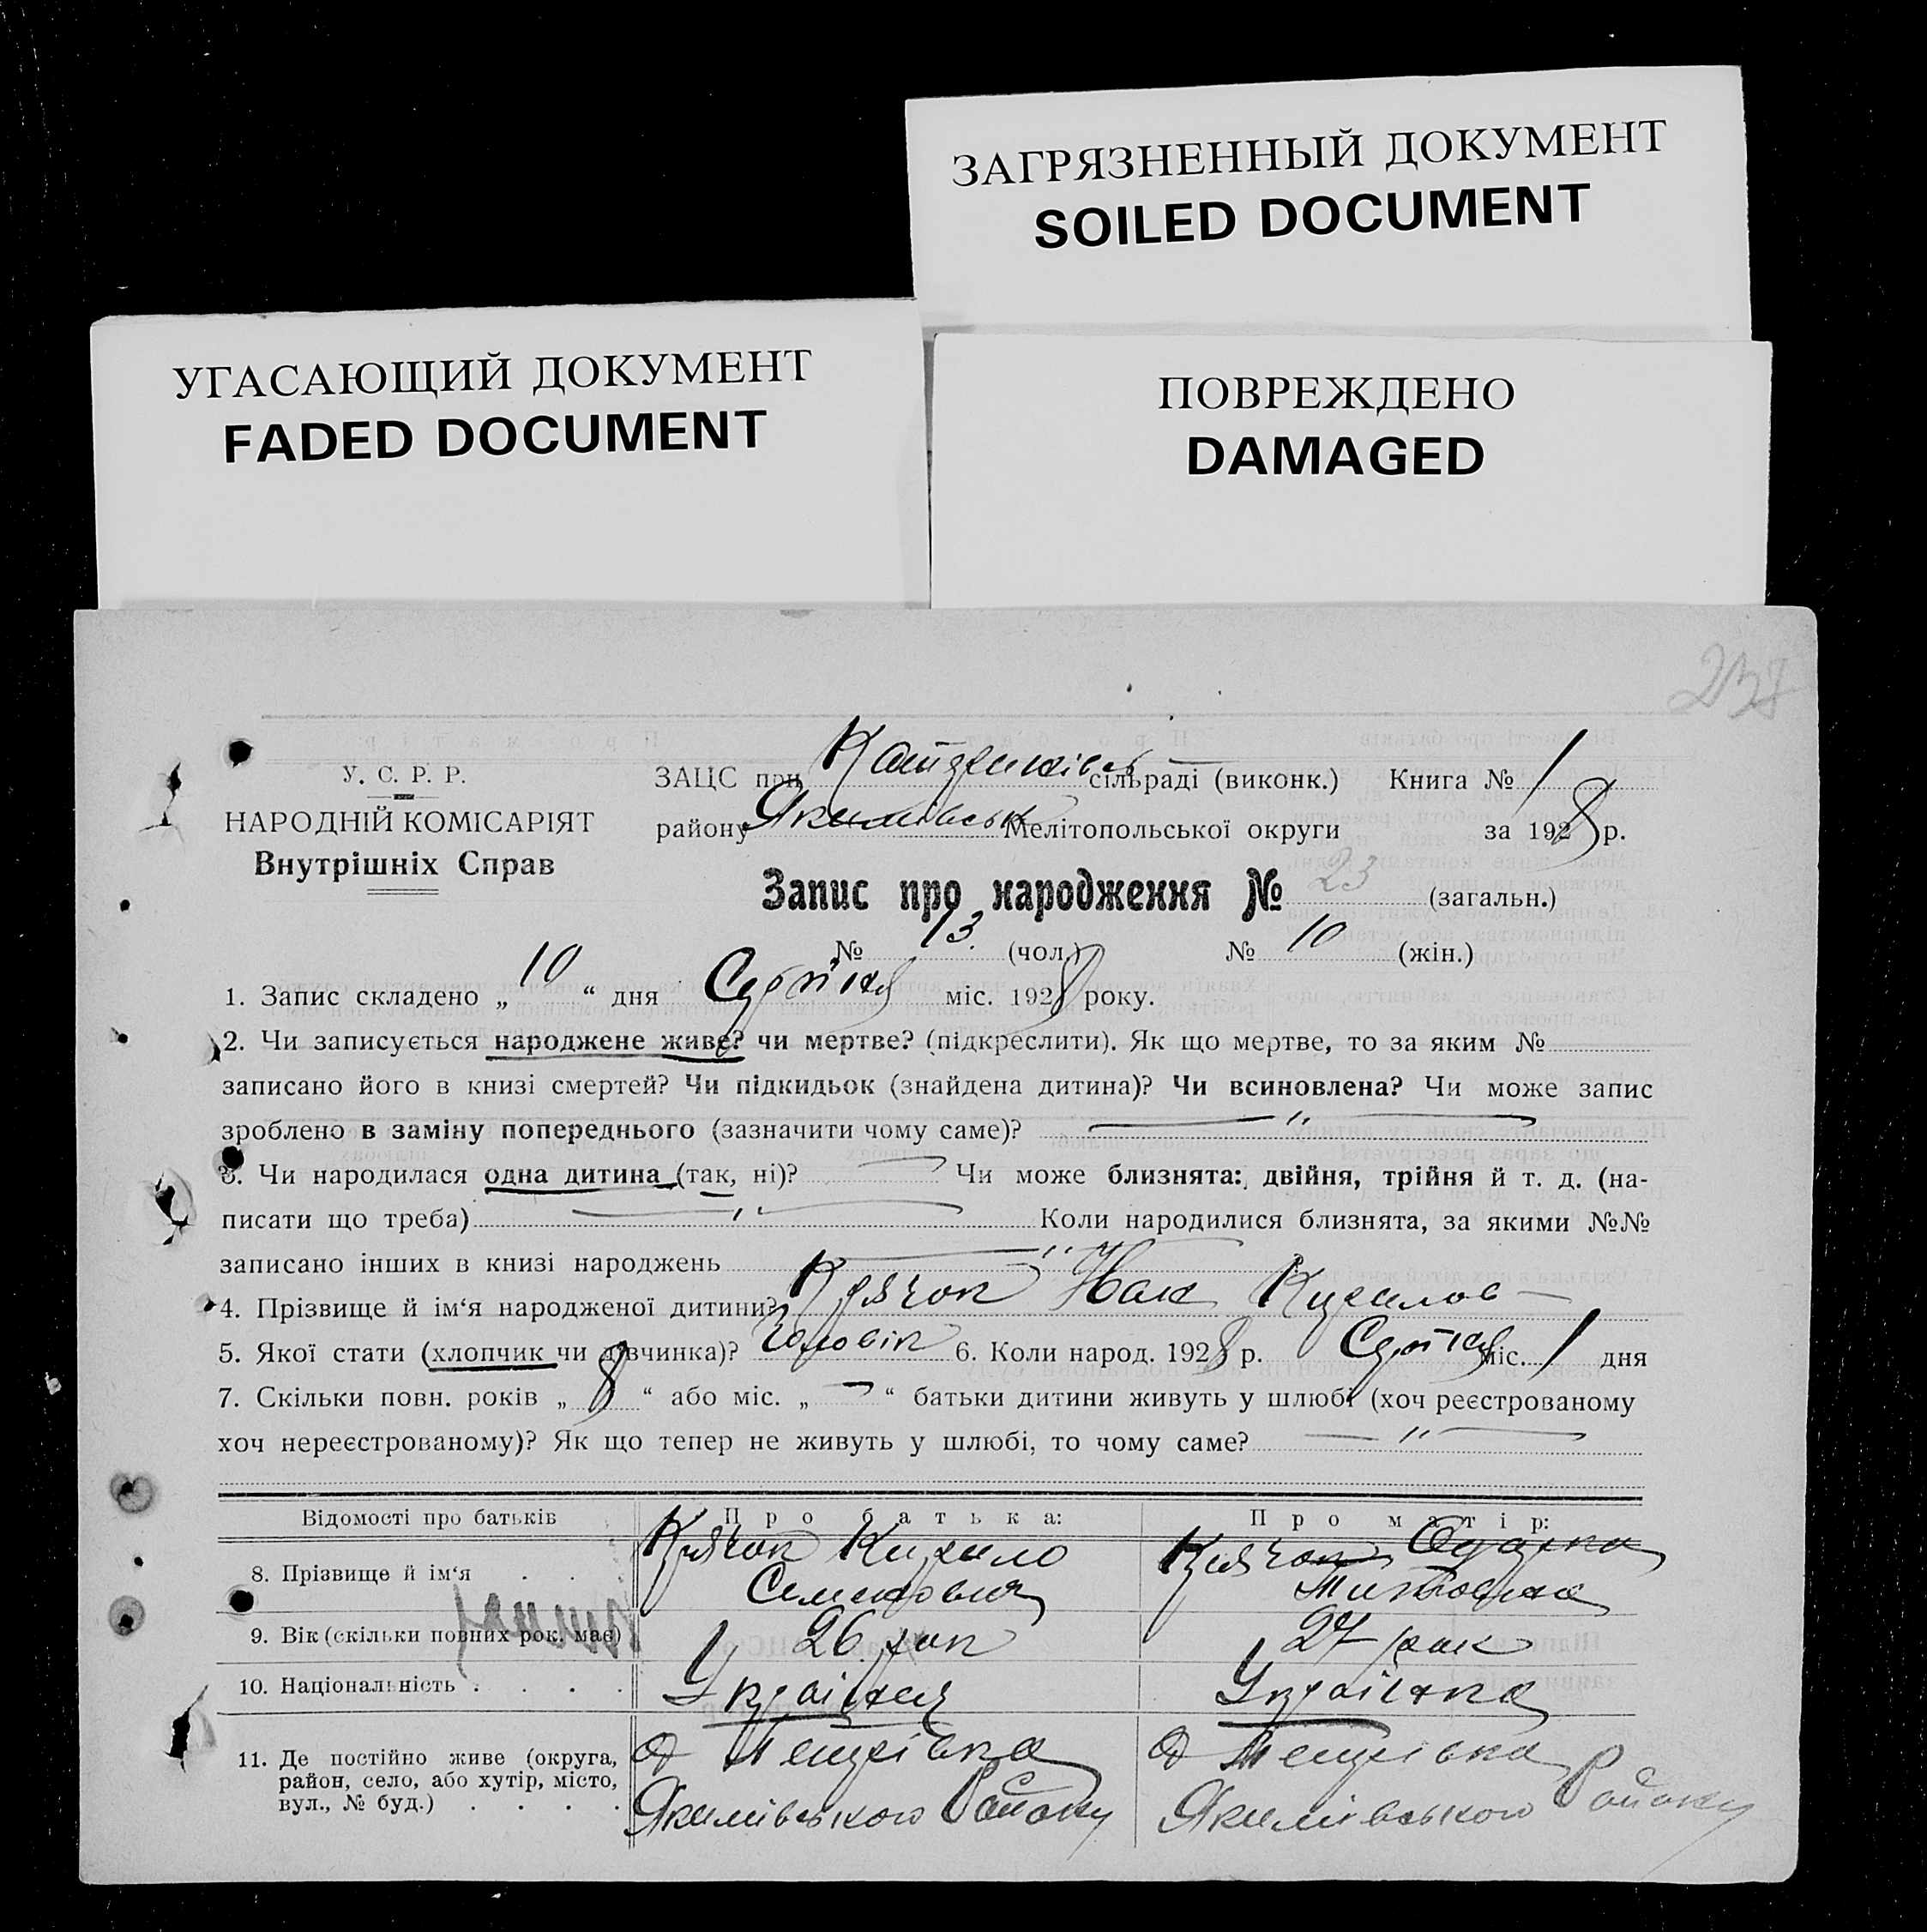 ЗАГРЯЗНЕННЫЙ ДОКУМЕНТ
SOILED DOCUMENT
УГАСАЮЩИЙ ДОКУМЕНТ
FADED DOCUMENT
ПОВРЕЖДЕНО
DAMAGED
У. С. Р. Р.
НАРОДНІЙ КОМІСАРІЯТ
Внутрішніх Справ
ЗАЦС при сільраді (виконк.) Книга № 1
району Якимівськ Мелітопольської округи за 1928 р.
Запис про народження № 23 (загальн.)
№ 13. (чол.) № 10 (жін.)
1. Запис складено „ 10 “ дня Серпня міс. 1928 року.
2. Чи записується народжене живе? чи мертве? (підкреслити). Як що мертве, то за яким №
записано його в книзі смертей? Чи підкидьок (знайдена дитина)? Чи всиновлена? Чи може запис
зроблено в заміну попереднього (зазначити чому саме)? — „ —
3. Чи народилася одна дитина (так, ні)? — Чи може близнята: двійня, трійня й т. д. (на-
писати що треба) — „ — Коли народилися близнята, за якими №№
записано інших в книзі народжень — „ —
4. Прізвище й ім‘я народженої дитини? Крячок Кирилов
5. Якої стати (хлопчик чи дівчинка)? Чоловік 6. Коли народ. 1928 р. Серпня міс. 1 дня
7. Скільки повн. років „ 8 “ або міс. „ — “ батьки дитини живуть у шлюбі (хоч реєстрованому
хоч нереєстрованому)? Як що тепер не живуть у шлюбі, то чому саме? — „ —
Відомості про батьків Про батька: Про матір:
8. Прізвище й ім‘я . . . Крячок Кирило Крячок Одарка
Семенович Титовна
9. Вік (скільки повних рок. має) 26 рок 27 рок
10. Національність . . . . Українец Українка
11. Де постійно живе (округа,
район, село, або хутір, місто,
вул., № буд.) . . . .
Якимівського Району Якимівського Району